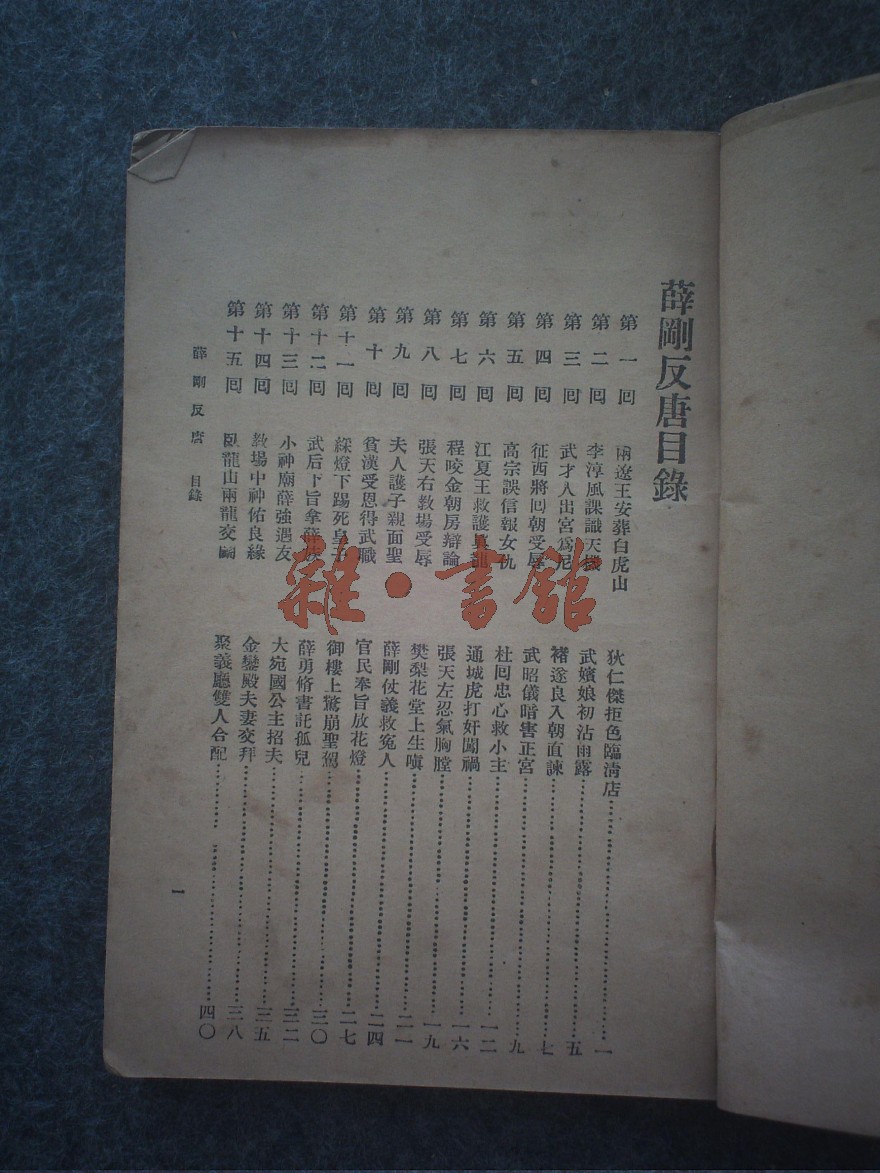 薛剛反唐目錄
第一回 兩遼王安葬白虎山 狄仁傑拒色臨清店 一
第二回 李淳風課識天機 武嬪娘初沾雨露 五
第三回 武才人出宮爲尼 褚遂良入朝直諫 七
第四回 征西將回朝受辱 武昭儀暗害正宮 九
第五回 高宗誤信報女仇 杜回忠心救小主 一二
第六回 江夏王救護眞龍 通城虎打奸闖禍 一六
第七回 程咬金朝房辯論 張天左忍氣胸膛 一九
第八回 張天右敎場受辱 樊梨花堂上生嗔 二一
第九回 夫人護子親面聖 薛剛仗義救冤人 二四
第十回 貧漢受恩得武職 官民奉旨放花燈 二七
第十一回 綵燈下踢死皇子 御樓上驚崩聖駕 三〇
第十二回 武后下旨拿薛族 薛勇脩書託孤兒 三二
第十三回 小神廟薛強遇友 大宛國公主招夫 三五
第十四回 敎場中神佑良緣 金鑾殿夫妻交拜 三八
第十五回 臥龍山兩龍交鬭 聚義廳雙人合配 四〇
薛剛反唐 目錄
一
雜·書館